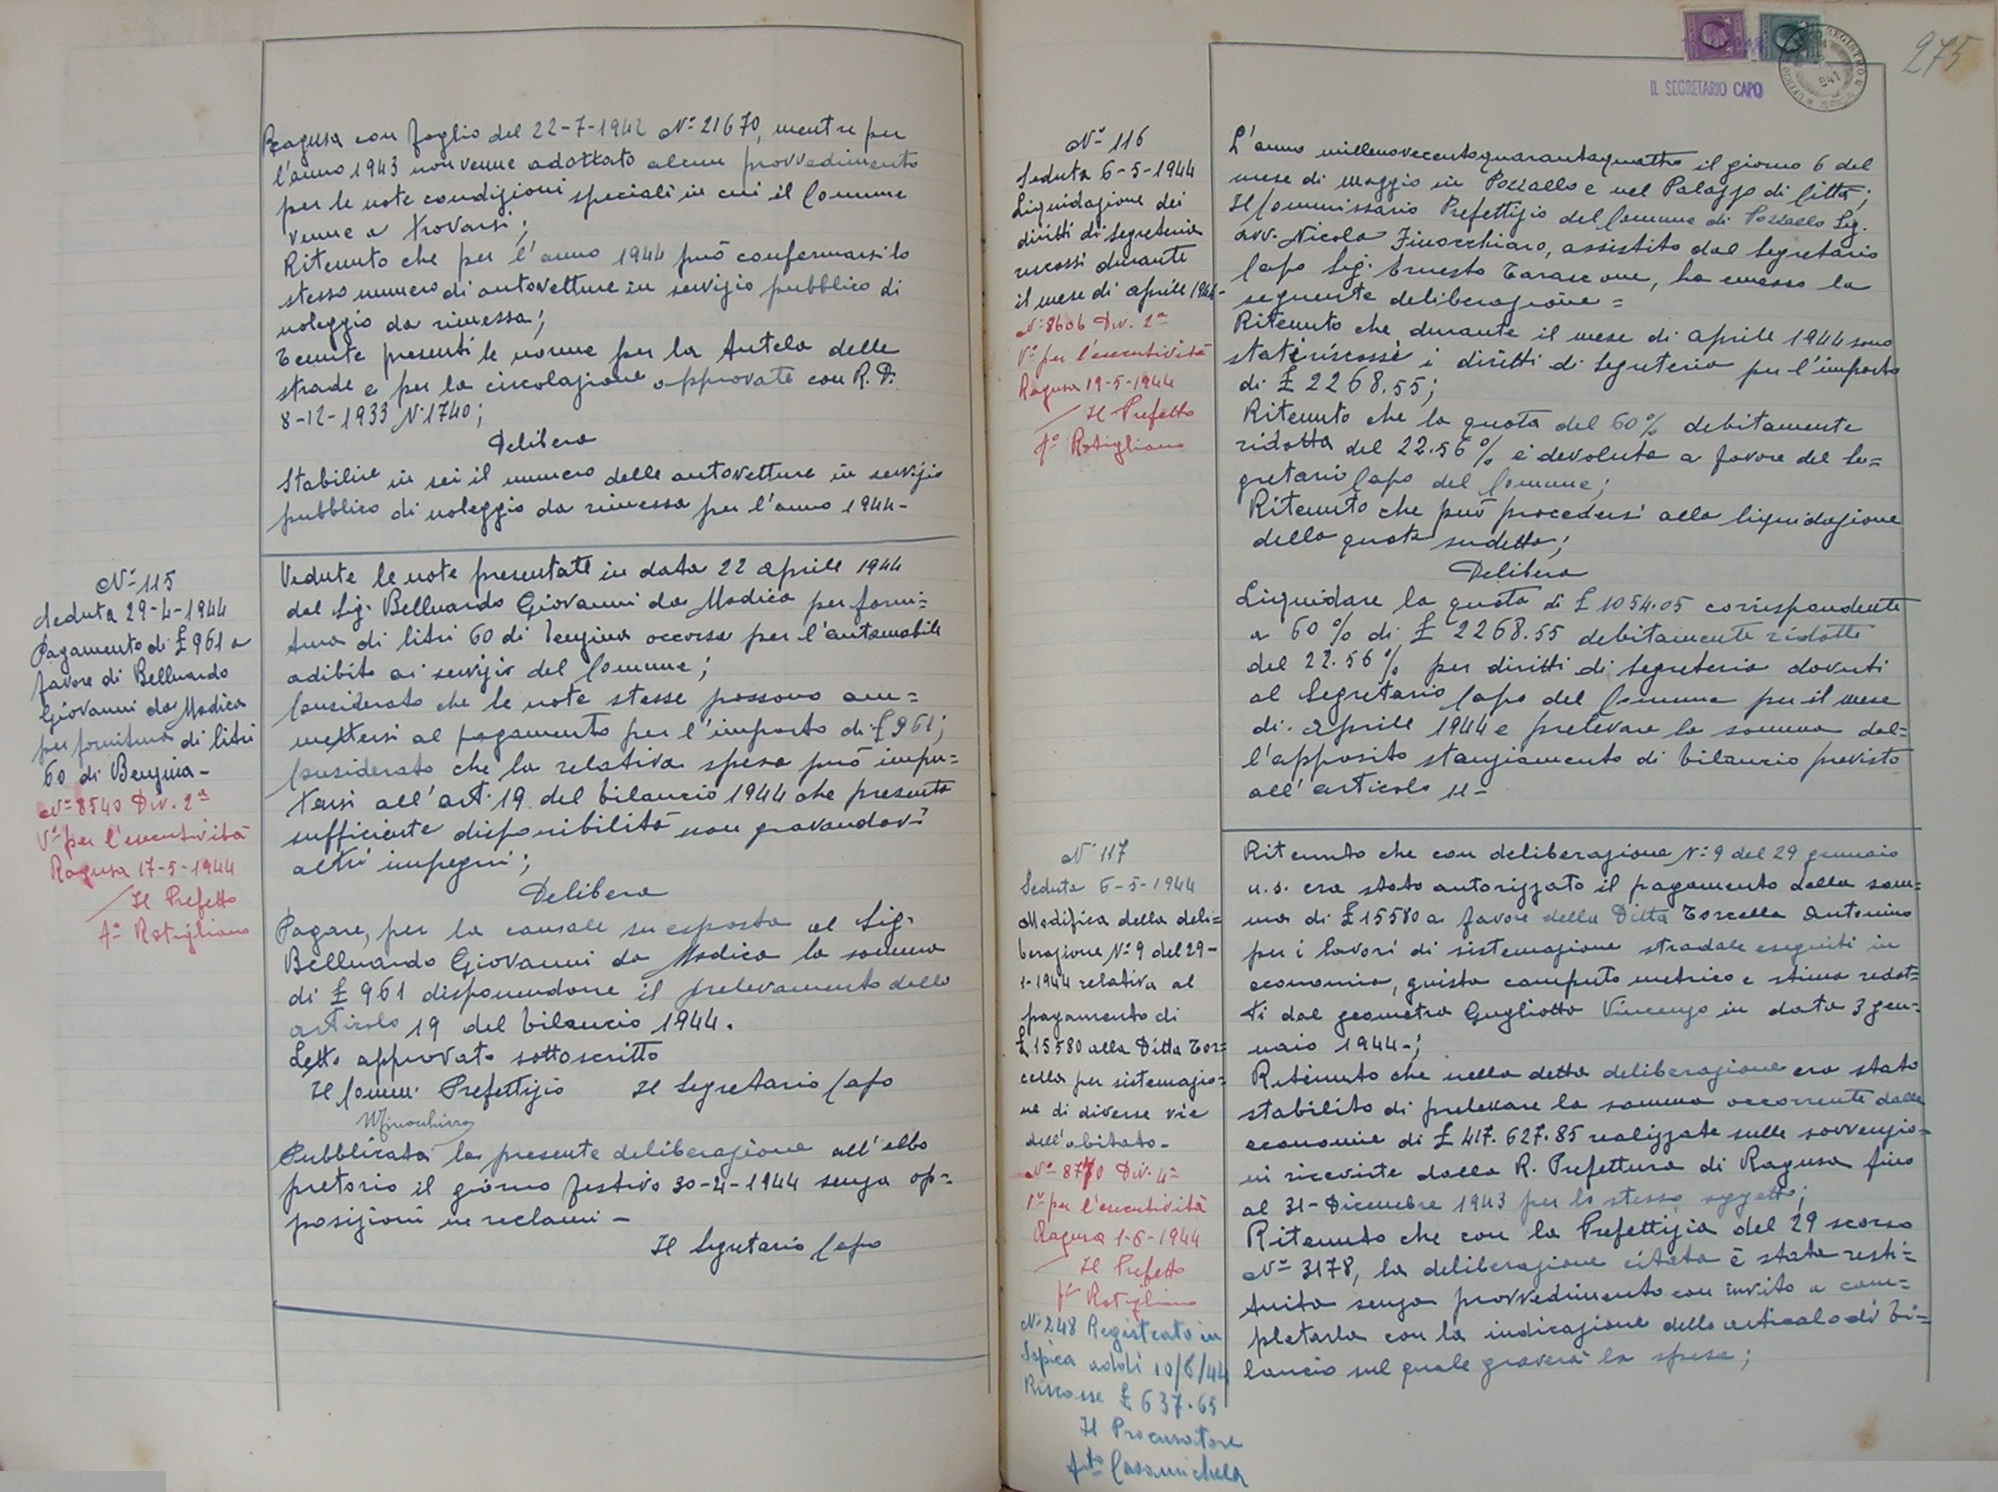 Ragusa con foglio del 22-7-1942 N° 21670, mentre per
l'anno 1943 non venne adottato alcun provvedimento
per le note condizioni speciali in cui il Comune
venne a trovarsi;
Ritenuto che per l'anno 1944 può confermarsi lo
stesso numero di autovetture in servizio pubblico di
noleggio da rimessa;
Tenute presenti le norme per la tutela delle
strade e per la circolazione approvate con R. D.
8-12-1933 N° 1740;
Delibera
Stabilire in sei il numero delle autovetture in servizio
pubblico di noleggio da rimessa per l'anno 1944-
N° 115
Seduta 29-4-1944
Pagamento di £ 961 a
favore di Belluardo
Giovanni da Modica
per fornitura di litri
60 di Benzina-
N° 8540 Div. 2ª
V° per l'esecutività
Ragusa 17-5-1944
Il Prefetto
f° Rotigliano
Vedute le note presentate in data 22 aprile 1944
dal Sig. Belluardo Giovanni da Modica per forni=
tura di litri 60 di benzina occorsa per l'automobile
adibito ai servizio del Comune;
Considerato che le note stesse possono am=
mettersi al pagamento per l'importo di £ 961;
Considerato che la relativa spesa può impu=
tarsi all'art. 19 del bilancio 1944 che presenta
sufficiente disponibilità non gravandovi
altri impegni;
Delibera
Pagare, per la causale su esposta al Sig.
Belluardo Giovanni da Modica la somma
di £ 961 disponendone il prelevamento dallo
articolo 19 del bilancio 1944.
Letto approvato sottoscritto
Il Comm. Prefettizio Il Segretario Capo
Pubblicata la presente deliberazione all'albo
pretorio il giorno festivo 30-4-1944 senza op=
posizioni ne reclami-
Il Segretario Capo
IL SEGRETARIO CAPO
275
N° 116
Seduta 6-5-1944
Liquidazione dei
diritti di segreteria
riscossi durante
il mese di aprile 1944-
N° 8606 Div. 2ª
V° per l'esecutività
Ragusa 19-5-1944
Il Prefetto
f° Rotigliano
L'anno millenovecentoquarantaquattro il giorno 6 del
mese di maggio in Pozzallo e nel Palazzo di Città;
Il Commissario Prefettizio del Comune di Pozzallo Sig.
avv. Nicola Finocchiaro, assistito dal Segretario
Capo Sig. Ernesto Tarascone, ha emesso la
seguente deliberazione=
Ritenuto che durante il mese di aprile 1944 sono
stati riscossi i diritti di segreteria per l'importo
di £ 2268.55;
Ritenuto che la quota del 60% debitamente
ridotta del 22.56% è devoluta a favore del Se=
gretario Capo del Comune;
Ritenuto che può procedersi alla liquidazione
della quota sudetta;
Delibera
Liquidare la quota di £ 1054.05 corrispondente
a 60% di £ 2268.55 debitamente ridotte
del 22.56% per diritti di segreteria dovuti
al Segretario Capo del Comune per il mese
di aprile 1944 e prelevare la somma dal=
l'apposito stanziamento di bilancio previsto
all'articolo 11-
N° 117
Seduta 6-5-1944
Modifica della deli=
berazione N° 9 del 29-
1-1944 relativa al
pagamento di
£ 15580 alla Ditta Tor=
cella per sistemazio=
ne di diverse vie
dell'abitato-
N° 8770 Div. 4ª
V° per l'esecutività
Ragusa 1-6-1944
Il Prefetto
f° Rotigliano
N° 248 Registrato in
Ispica addì 10/6/44
Riscosse £ 637.65
Il Procuratore
f.to Casamichela
Ritenuto che con deliberazione N° 9 del 29 gennaio
u. s. era stato autorizzato il pagamento della som=
ma di £ 15580 a favore della Ditta Torcella Antonino
per i lavori di sistemazione stradale eseguiti in
economia, giusta computo metrico e stima redat=
ti dal geometra Gugliotta Vincenzo in data 3 gen=
naio 1944-;
Ritenuto che nella detta deliberazione era stato
stabilito di prelevare la somma occorrente dalle
economie di £ 417.627.85 realizzate sulle sovvenzio=
ni ricevute dalla R. Prefettura di Ragusa fino
al 31-Dicembre 1943 per lo stesso oggetto;
Ritenuto che con la Prefettizia del 29 scorso
N° 3178, la deliberazione citata è stata resti=
tuita senza provvedimento con invito a com=
pletarla con la indicazione dello articolo di bi=
lancio sul quale graverà la spesa;